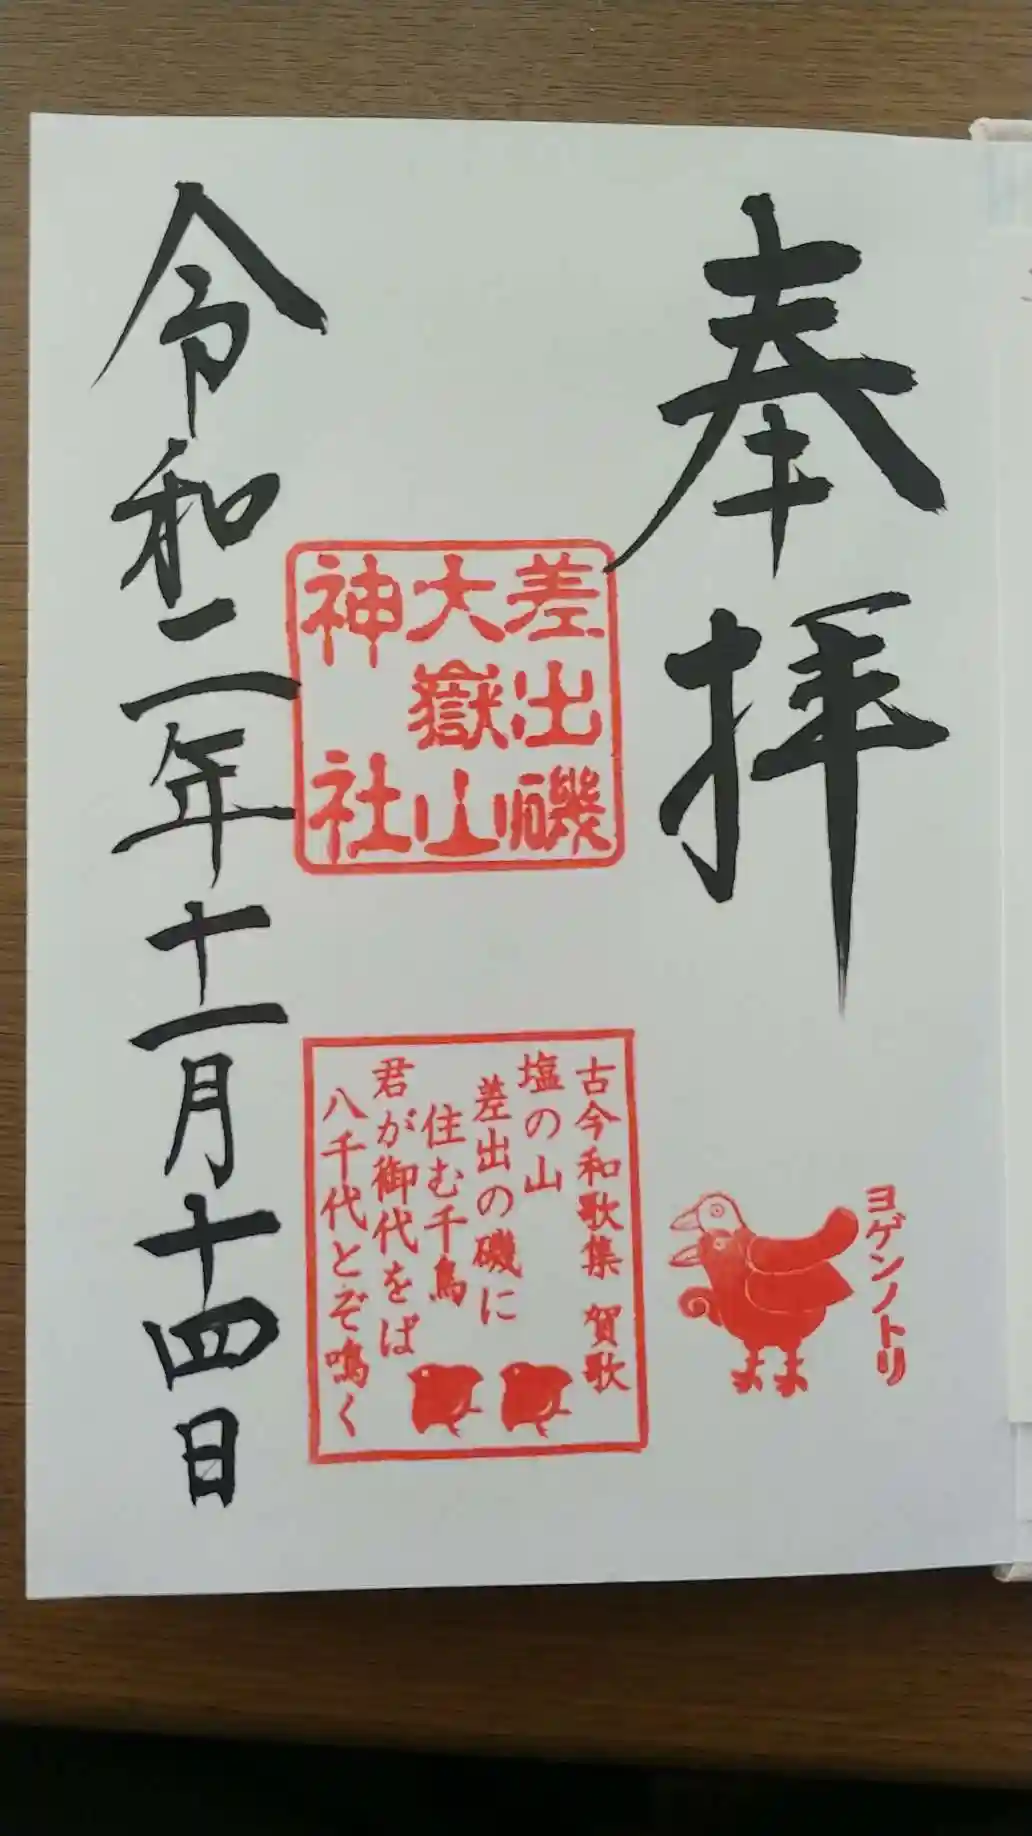 奉拝
ヨゲンノトリ
差出磯
大嶽山
神社
古今和歌集 賀歌
塩の山
差出の磯に
住む千鳥
君が御代をば
八千代とぞ鳴く
令和二年十一月十四日